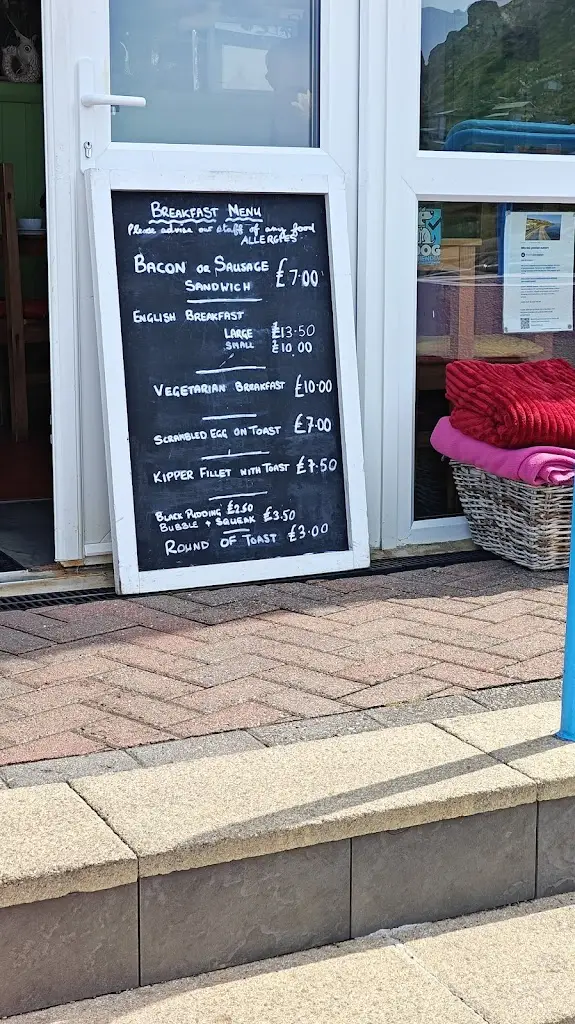 BREAKFAST MENU
Please advise our staff of any food
ALLERGIES
BACON OR SAUSAGE
SANDWICH £7.00
ENGLISH BREAKFAST
LARGE £13.50
SMALL £10.00
VEGETARIAN BREAKFAST £10.00
SCRAMBLED EGG ON TOAST £7.00
KIPPER FILLET WITH TOAST £7.50
BLACK PUDDING £2.50
BUBBLE + SQUEAK £3.50
ROUND OF TOAST £3.00